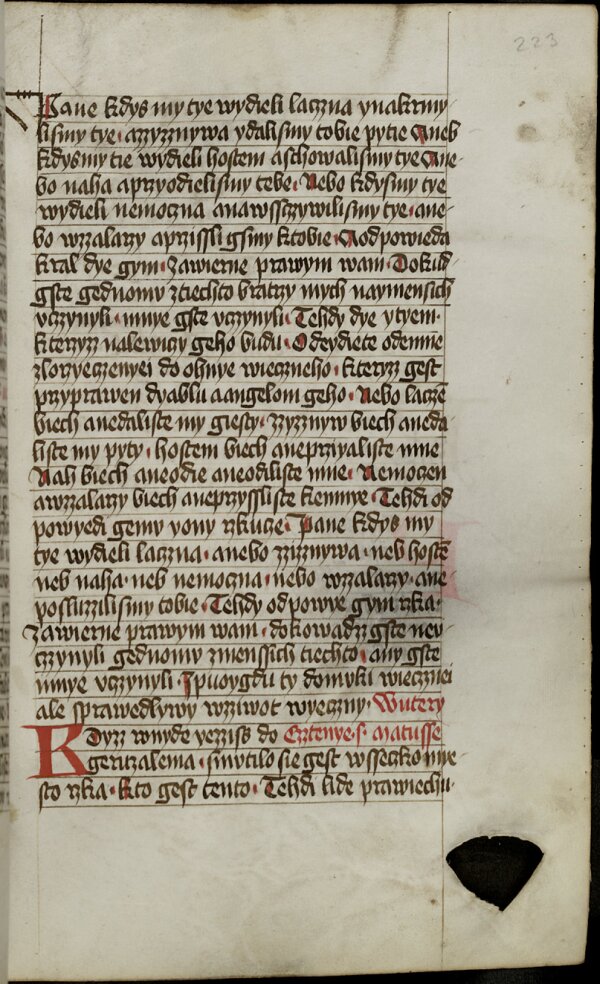 223
Pane kdys my tye wydieli laczna ynakrmy-
lismy tye· azzyznywa ydalismy tobie pytie Aneb
kdysmy tie wydieli hostem aschowalismy tye Ane-
bo naha aprzyodielismy tebe· Nebo kdysmy tye
wydieli nemoczna anawssczywilismy tye· ane-
bo wzzalarzy aprzissli gsmy ktobie· Aodpowieda
kral dye gym· zawierne prawym wam· Dokud
gste gednomu ztiechto bratrzy mych naymensich
vczynyli· mnye gste vczynyli· Tehdy dye ytyem·
kterzyz nalewiczy geho budu· Odeydiete odemne
zlorzyeczenyei do ohnye wieczneho· kteryz gest
przyprawen dyablu aangelom geho· Nebo laczē
biech anedaliste my giesty· zzyznyw biech aneda-
liste my pyty· hostem biech aneprzyaliste mne
Nah biech aneodie aneodiliste mne· Nemoczen
awzzalarzy biech aneprzyssliste kemnye· Tehdi od
powyedi gemu yony rzkucze· Pane kdys my
tye wydieli laczna· anebo zzyznywa· neb hostē
neb naha· neb nemoczna· nebo wzzalarzy· ane
posluzzilismy tobie· Tehdy odpowye gym rzka·
Zawierne prawym wam· dokowadz gste neu-
czynyli gednomu zmenssich tiechto· any gste
mnye vczynyli· Ipuoygdu ty domuky wiecznei
ale sprawedlywy wzziwot wyeczny· Wutery
Kdyzz wnyde yezziss do Cztenye· s· Matusse
geruzalema· smutilo sie gest wsseczko mye
sto rzka· kto gest tento· Tehdi lide prawiechu·